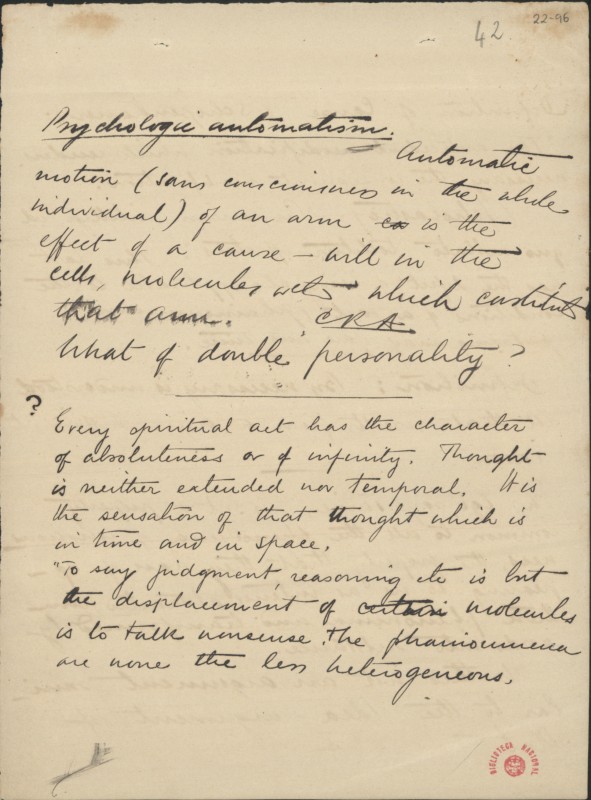 42
22-96
Psychologic automatism.
Automatic
motion (sans consciousness in the whole
individual) of an arm is the
effect of a cause — will in the
cells, molecules etc which constitute
that arm. CRA
What of double personality?
?
Every spiritual act has the character
of absoluteness or of infinity. Thought
is neither extended nor temporal. It is
the sensation of that thought which is
in time and in space.
"To say judgment, reasoning etc is but
the displacement of certain molecules
is to talk nonsense. The phainoumena
are none the less heterogeneous.
BIBLIOTECA NACIONAL